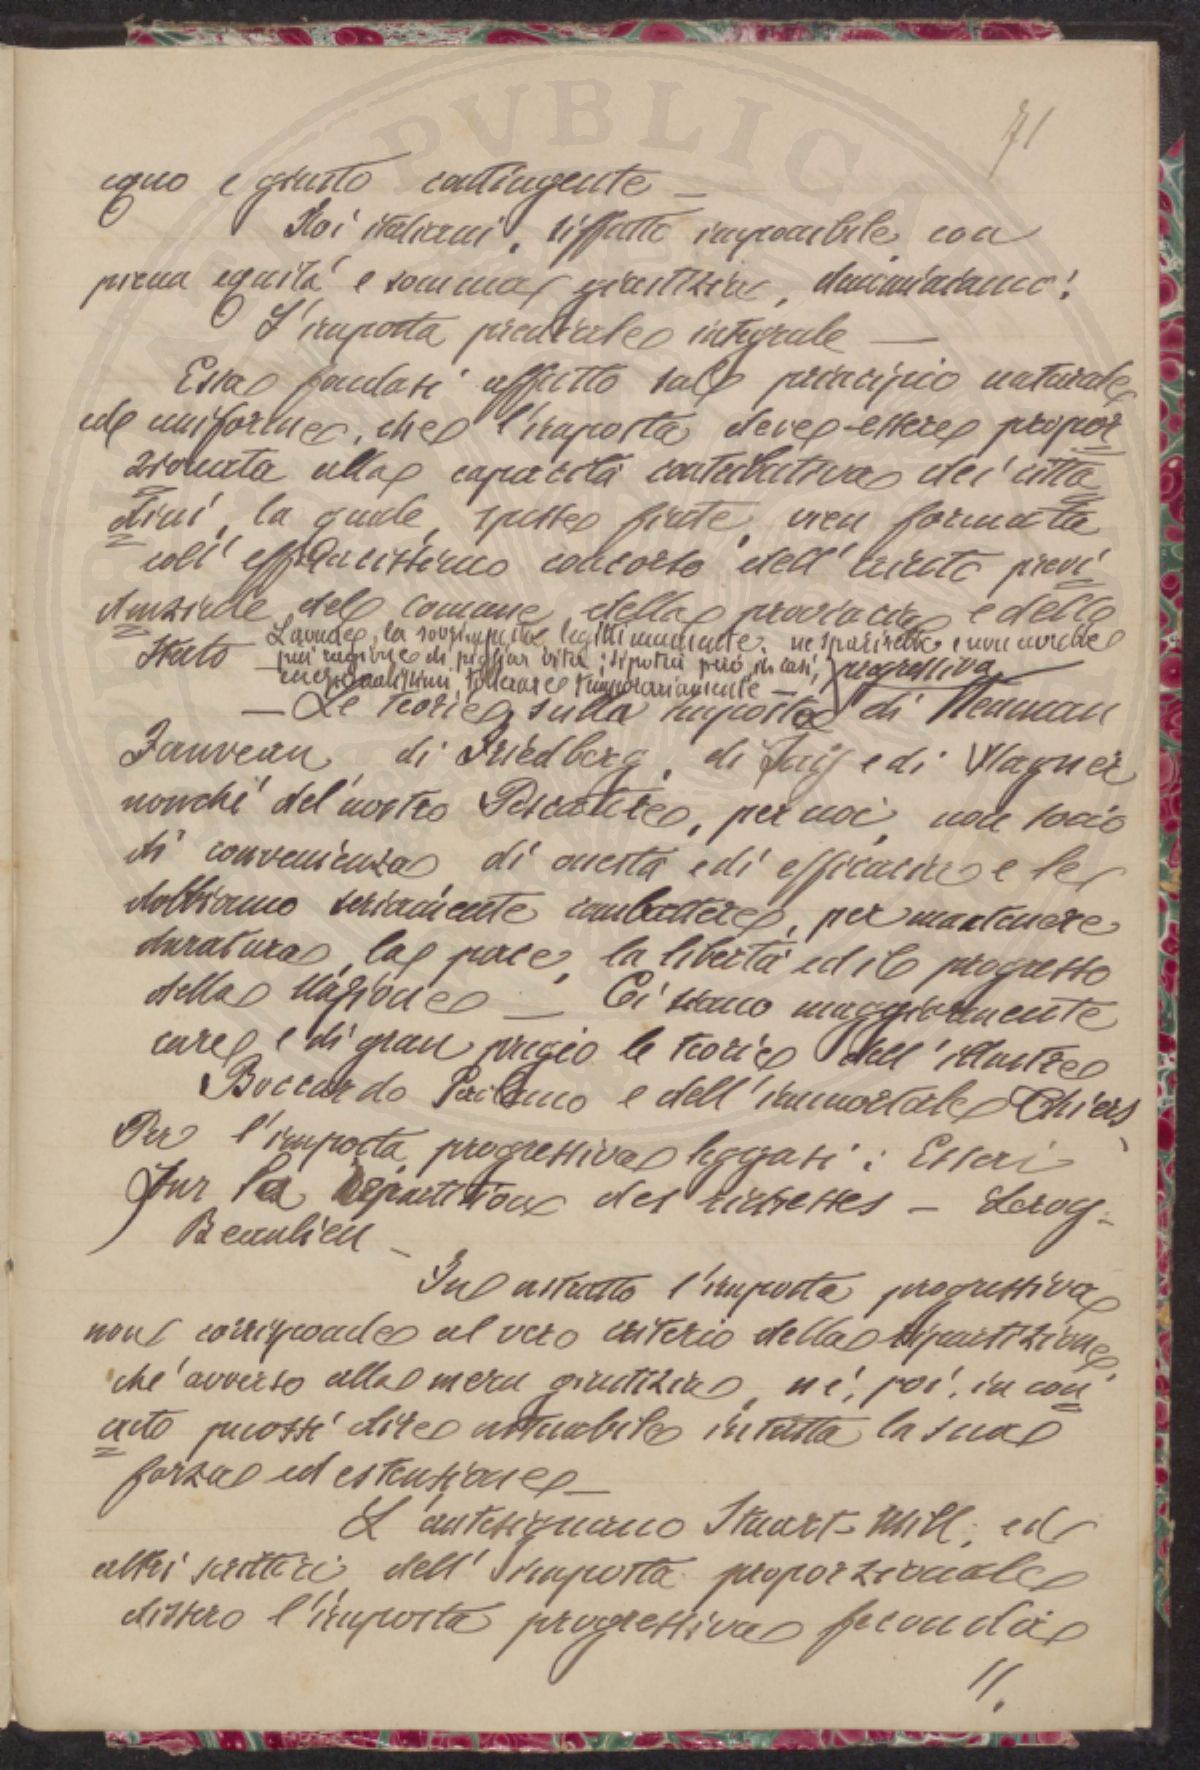 71
equo e giusto contingente —
Noi italiani, siffatto imponibile, con
piena equità e somma giustizia, denominiamo:
L'imposta prediale integrale —
Essa fondasi affatto sul principio naturale
ed uniforme, che l'imposta deve essere propor
zionata alla capacità contributiva dei citta
dini, la quale, spesse fiate, vien formata
coll' efficacissimo concorso dell' aiuto previ
denziale del comune, della provincia e dello
Stato — Laonde, la sovrimposta, legittimamente, ne sparirebbe e non avrebbe
più ragione di pigliar vita; si potria però, in casi,
eccezionalissimi, tollerare temporariamente —
— Le teorie sulla imposta progressiva di Neuman
Fauveau di Friedberg, di Say e di Wagner
nonché del nostro Pescatore, per noi, non sono
di convenienza di onestà e di efficacia e le
dobbiamo seriamente combattere, per mantenere
duratura la pace, la libertà ed il progresso
della Nazione — Ci siano maggiormente
care e di gran pregio le teorie dell' illustre
Boccardo Girolamo e dell' immortale Thiers
Per l'imposta progressiva leggasi: Essai
sur la repartition des richesses — Leroy-
Beaulieu —
In astratto l'imposta progressiva
non corrisponde al vero criterio della ripartizione,
ché avverso alla mera giustizia, né, poi, in con
creto puossi dire attuabile in tutta la sua
forza ed estensione —
L'antesignano Stuart-Mill, ed
altri scrittori dell' imposta proporzionale
dissero l'imposta progressiva feconda
11.